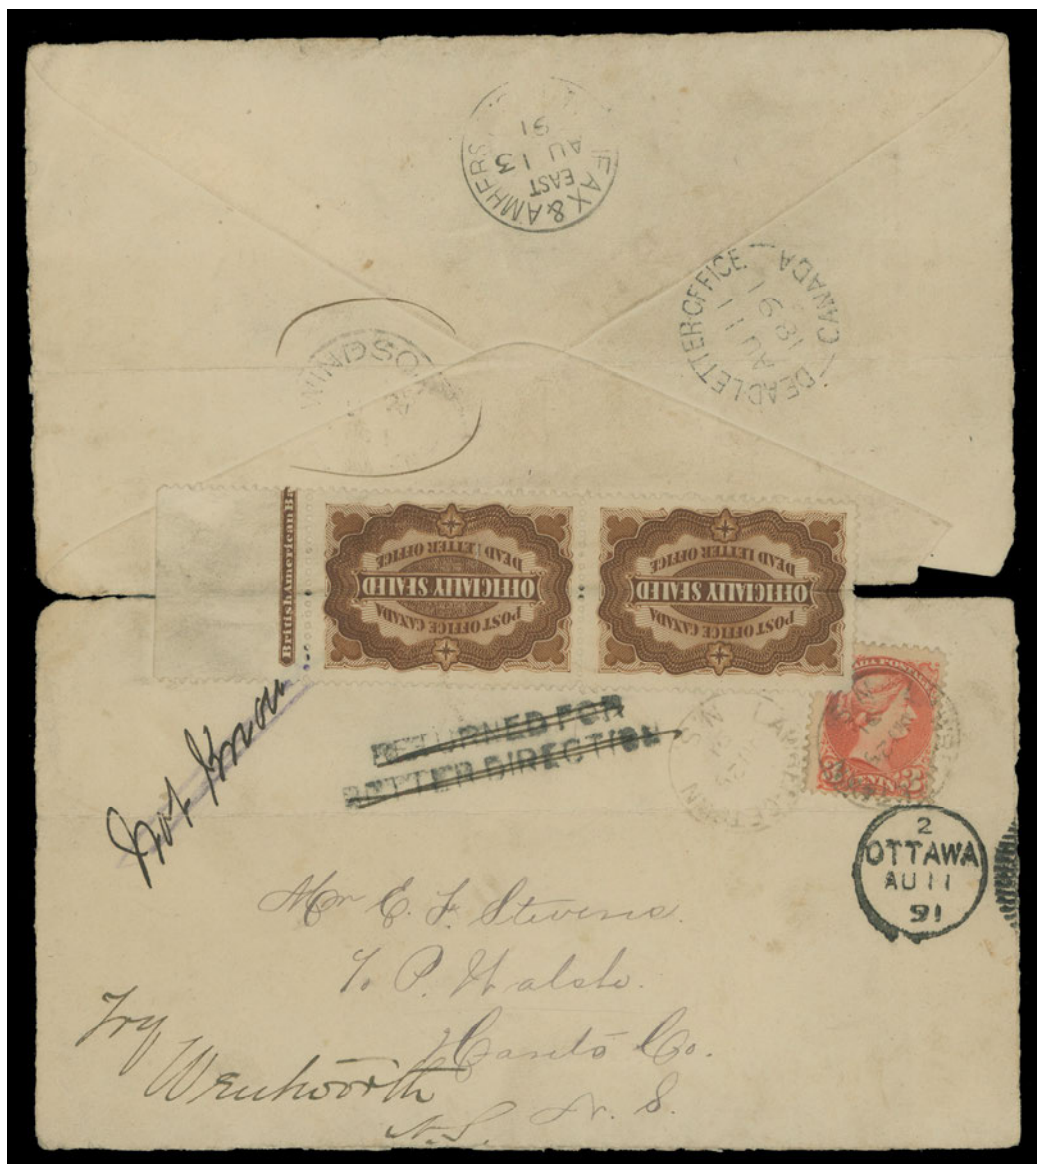 IFAX & AMHERS
EAST
AU 13
91
DEAD LETTER OFFICE
CANADA
AU 11
1891
WINDSO
British American Ba
POST OFFICE CANADA
OFFICIALLY SEALED
DEAD LETTER OFFICE
POST OFFICE CANADA
OFFICIALLY SEALED
DEAD LETTER OFFICE
Not Known
RETURNED FOR
BETTER DIRECTION
N.S.
2
OTTAWA
AU 11
91
Mr E. F. Stevens.
P. Walsh.
Hants Co.
N. S.
Try
Wenhworth
N.S.